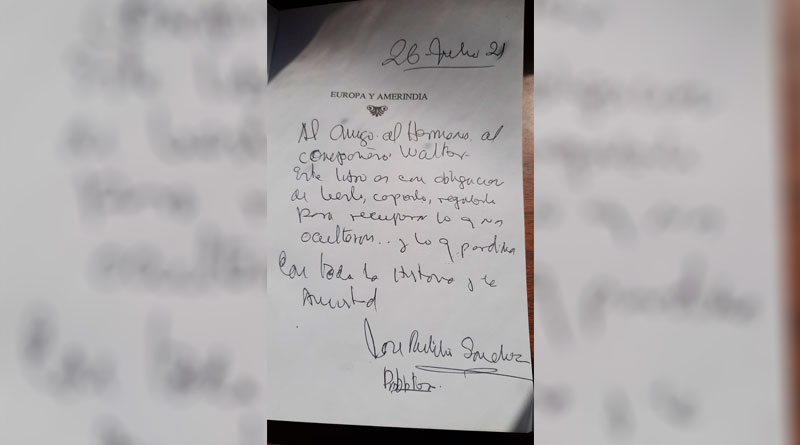 26 Julio 21
EUROPA Y AMERINDIA
Al Amigo, al Hermano, al
compañero, Walter.
Este libro es con obligación
de leerlo, copiarlo, regalarlo
para recuperar lo q nos
ocultaron... y lo q. perdimos
Con toda la Historia y la
Amistad
Sánchez